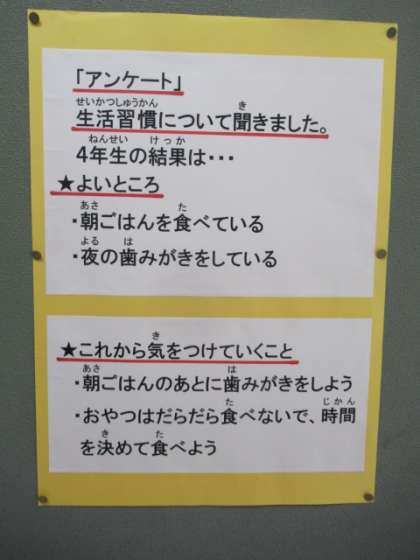 「アンケート」
せいかつしゅうかん き
生活習慣について聞きました。
ねんせい けっか
4年生の結果は・・・
★よいところ
あさ た
・朝ごはんを食べている
よる は
・夜の歯みがきをしている
き
★これから気をつけていくこと
あさ は
・朝ごはんのあとに歯みがきをしよう
た じかん
・おやつはだらだら食べないで、時間
き た
を決めて食べよう